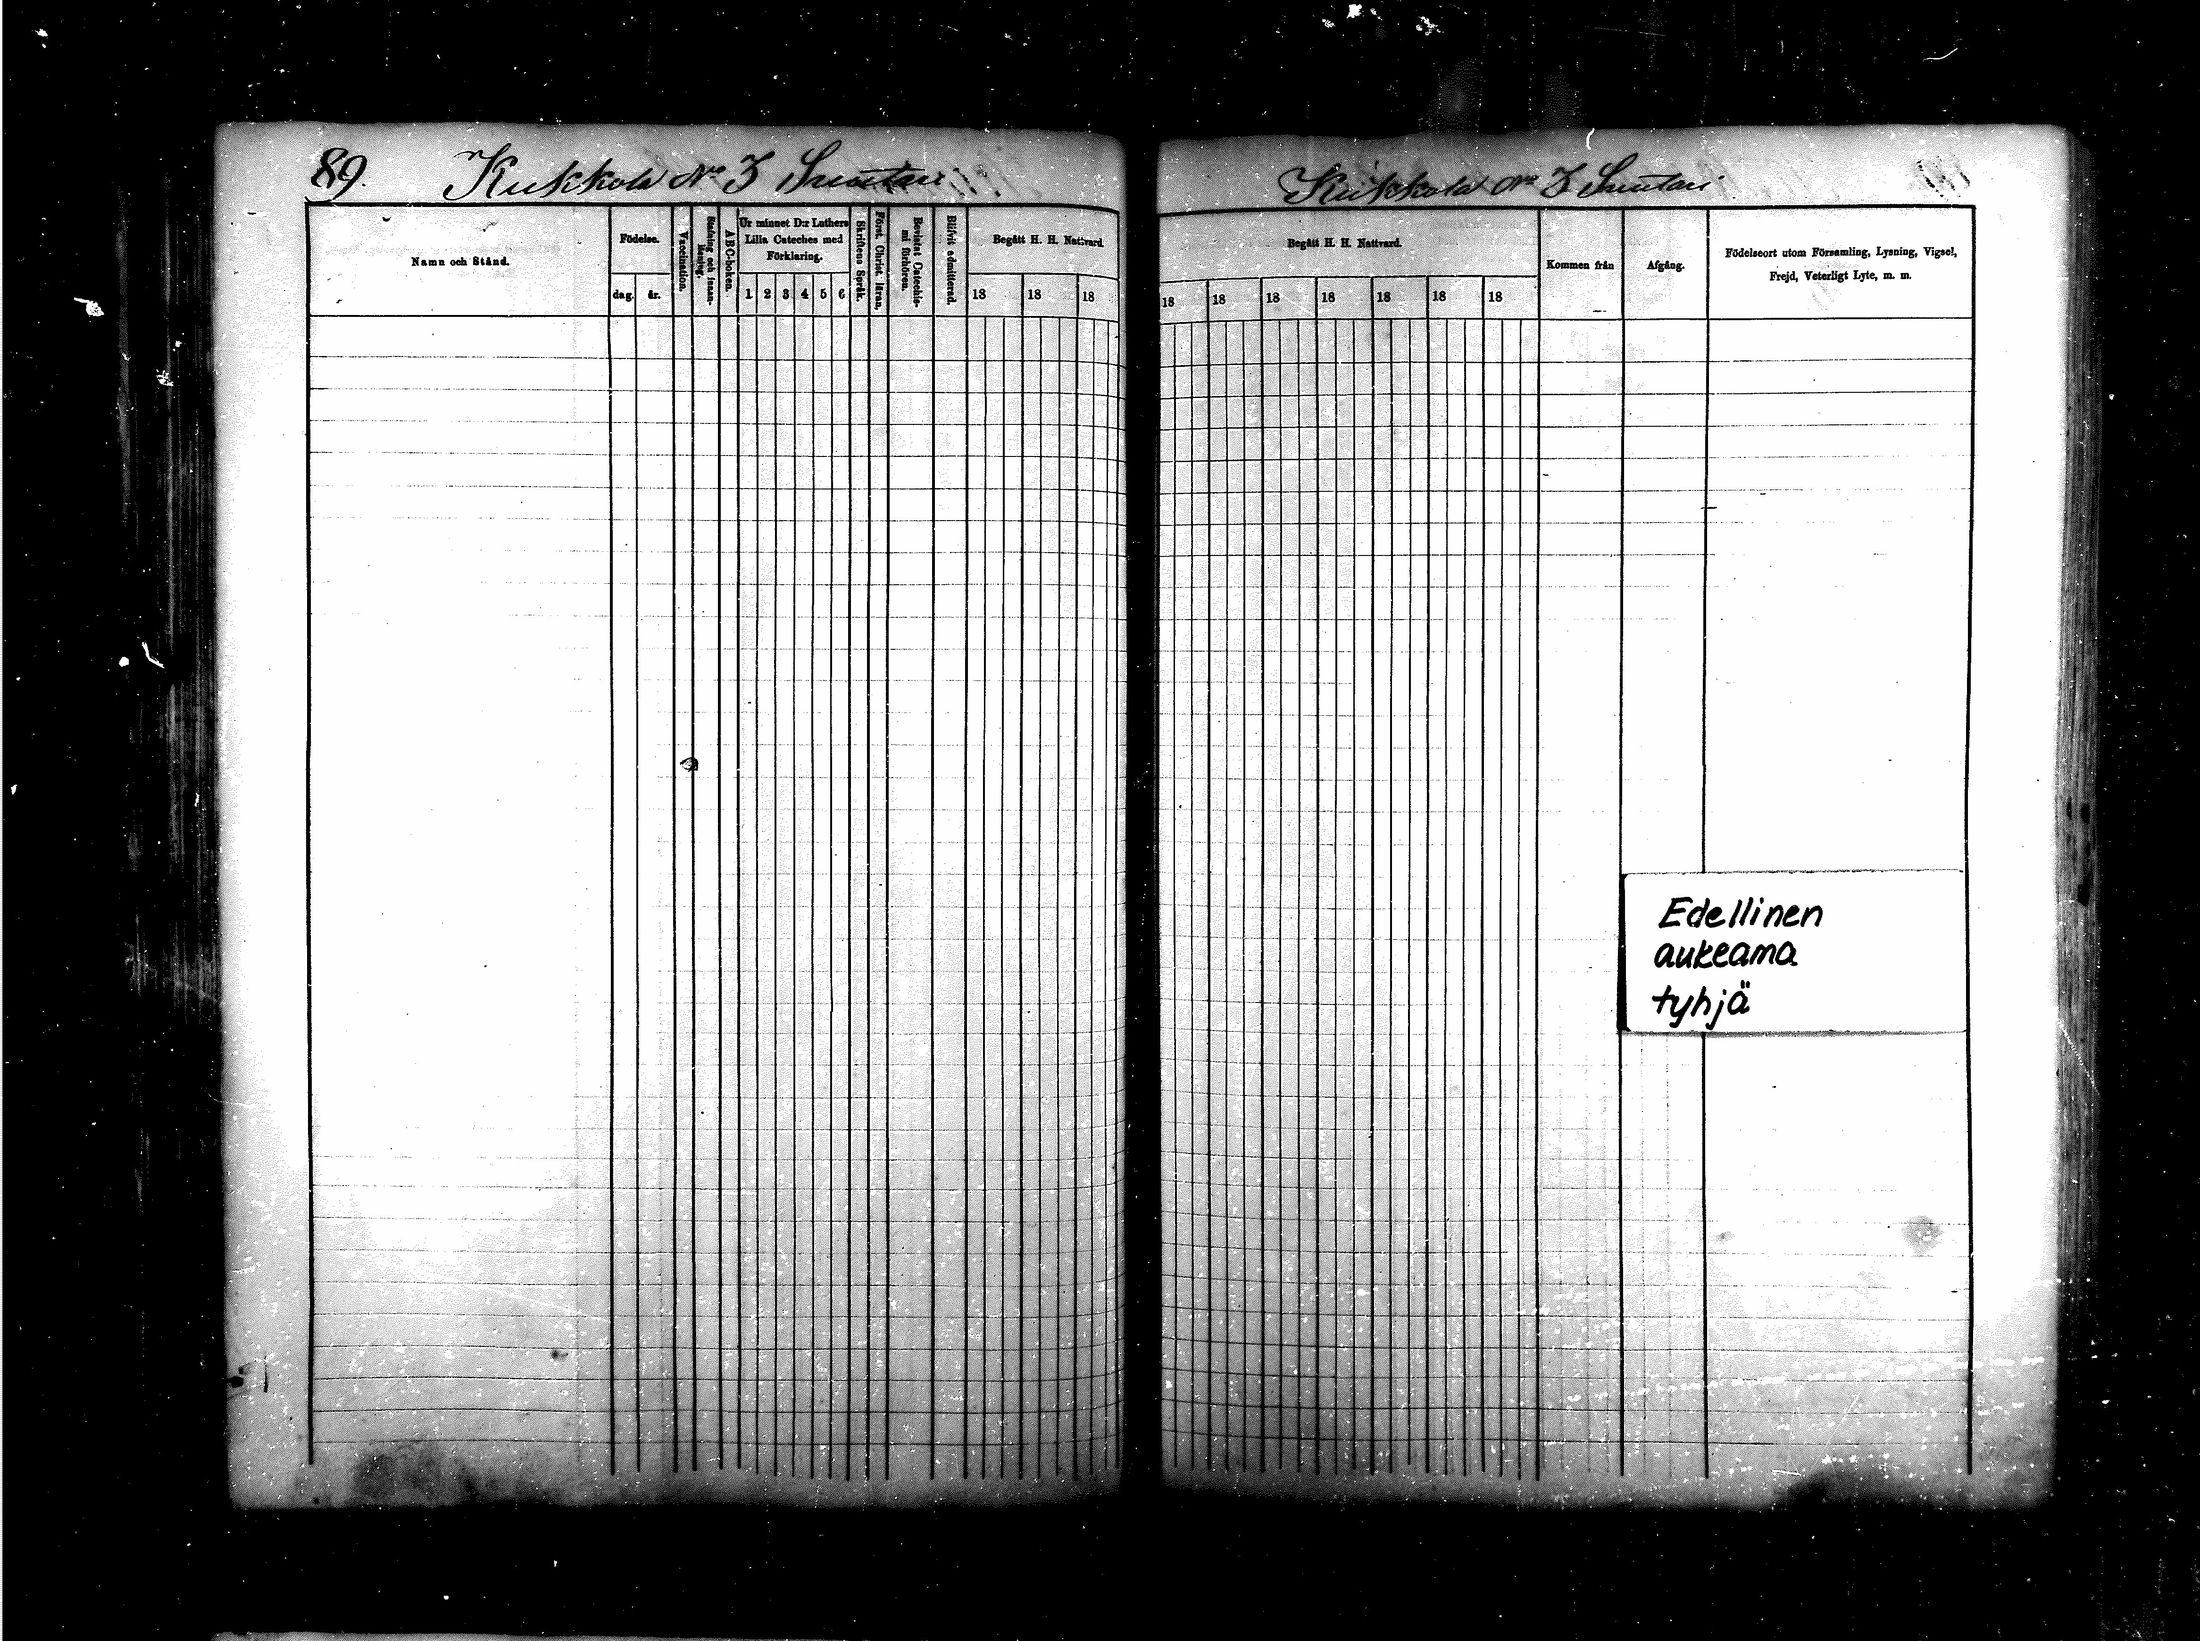 89. Kukkola No 3 Suutari
Namn och Stånd.
Födelse.
dag. år.
Vaccination.
Stafning och innan-
läsning.
ABC-boken.
Ur minnet D:r Luthers
Lilla Cateches med
Förklaring.
1 2 3 4 5 6
Skriftens Språk.
Först. Christ. läran.
Bevistat Catechis-
mi förhören.
Blifvit admitterad.
Begått H. H. Nattvard.
18 18 18
Kukkola No 3 Suutari
Begått H. H. Nattvard.
18 18 18 18 18 18 18
Kommen från
Afgång.
Födelseort utom Församling, Lysning, Vigsel,
Frejd, Veterligt Lyte, m. m.
Edellinen
aukeama
tyhjä